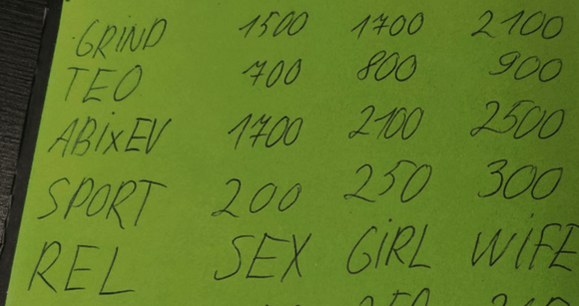 GRIND 1500 1700 2100
TEO 700 800 900
ABIXEV 1700 2100 2500
SPORT 200 250 300
REL SEX GIRL WIFE